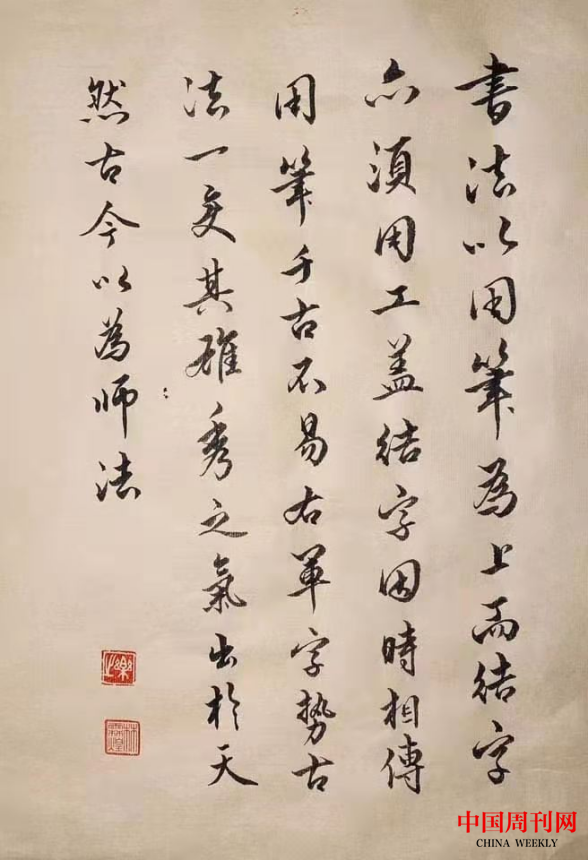 書法以用筆為上而結字
亦須用工蓋結字因時相傳
用筆千古不易右軍字勢古
法一变其雄秀之氣出於天
然古今以為師法
中国周刊网
CHINA WEEKLY